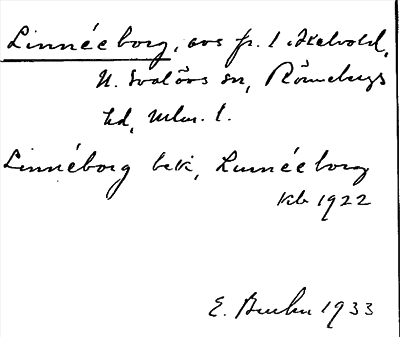 Linnéeborg, avs fr. 1 Skatvold,
N. Svalövs sn, Rönnebergs
hd, Mlm. l.
Linnéborg bektr, Linnéeborg
kb 1922
E. 1933